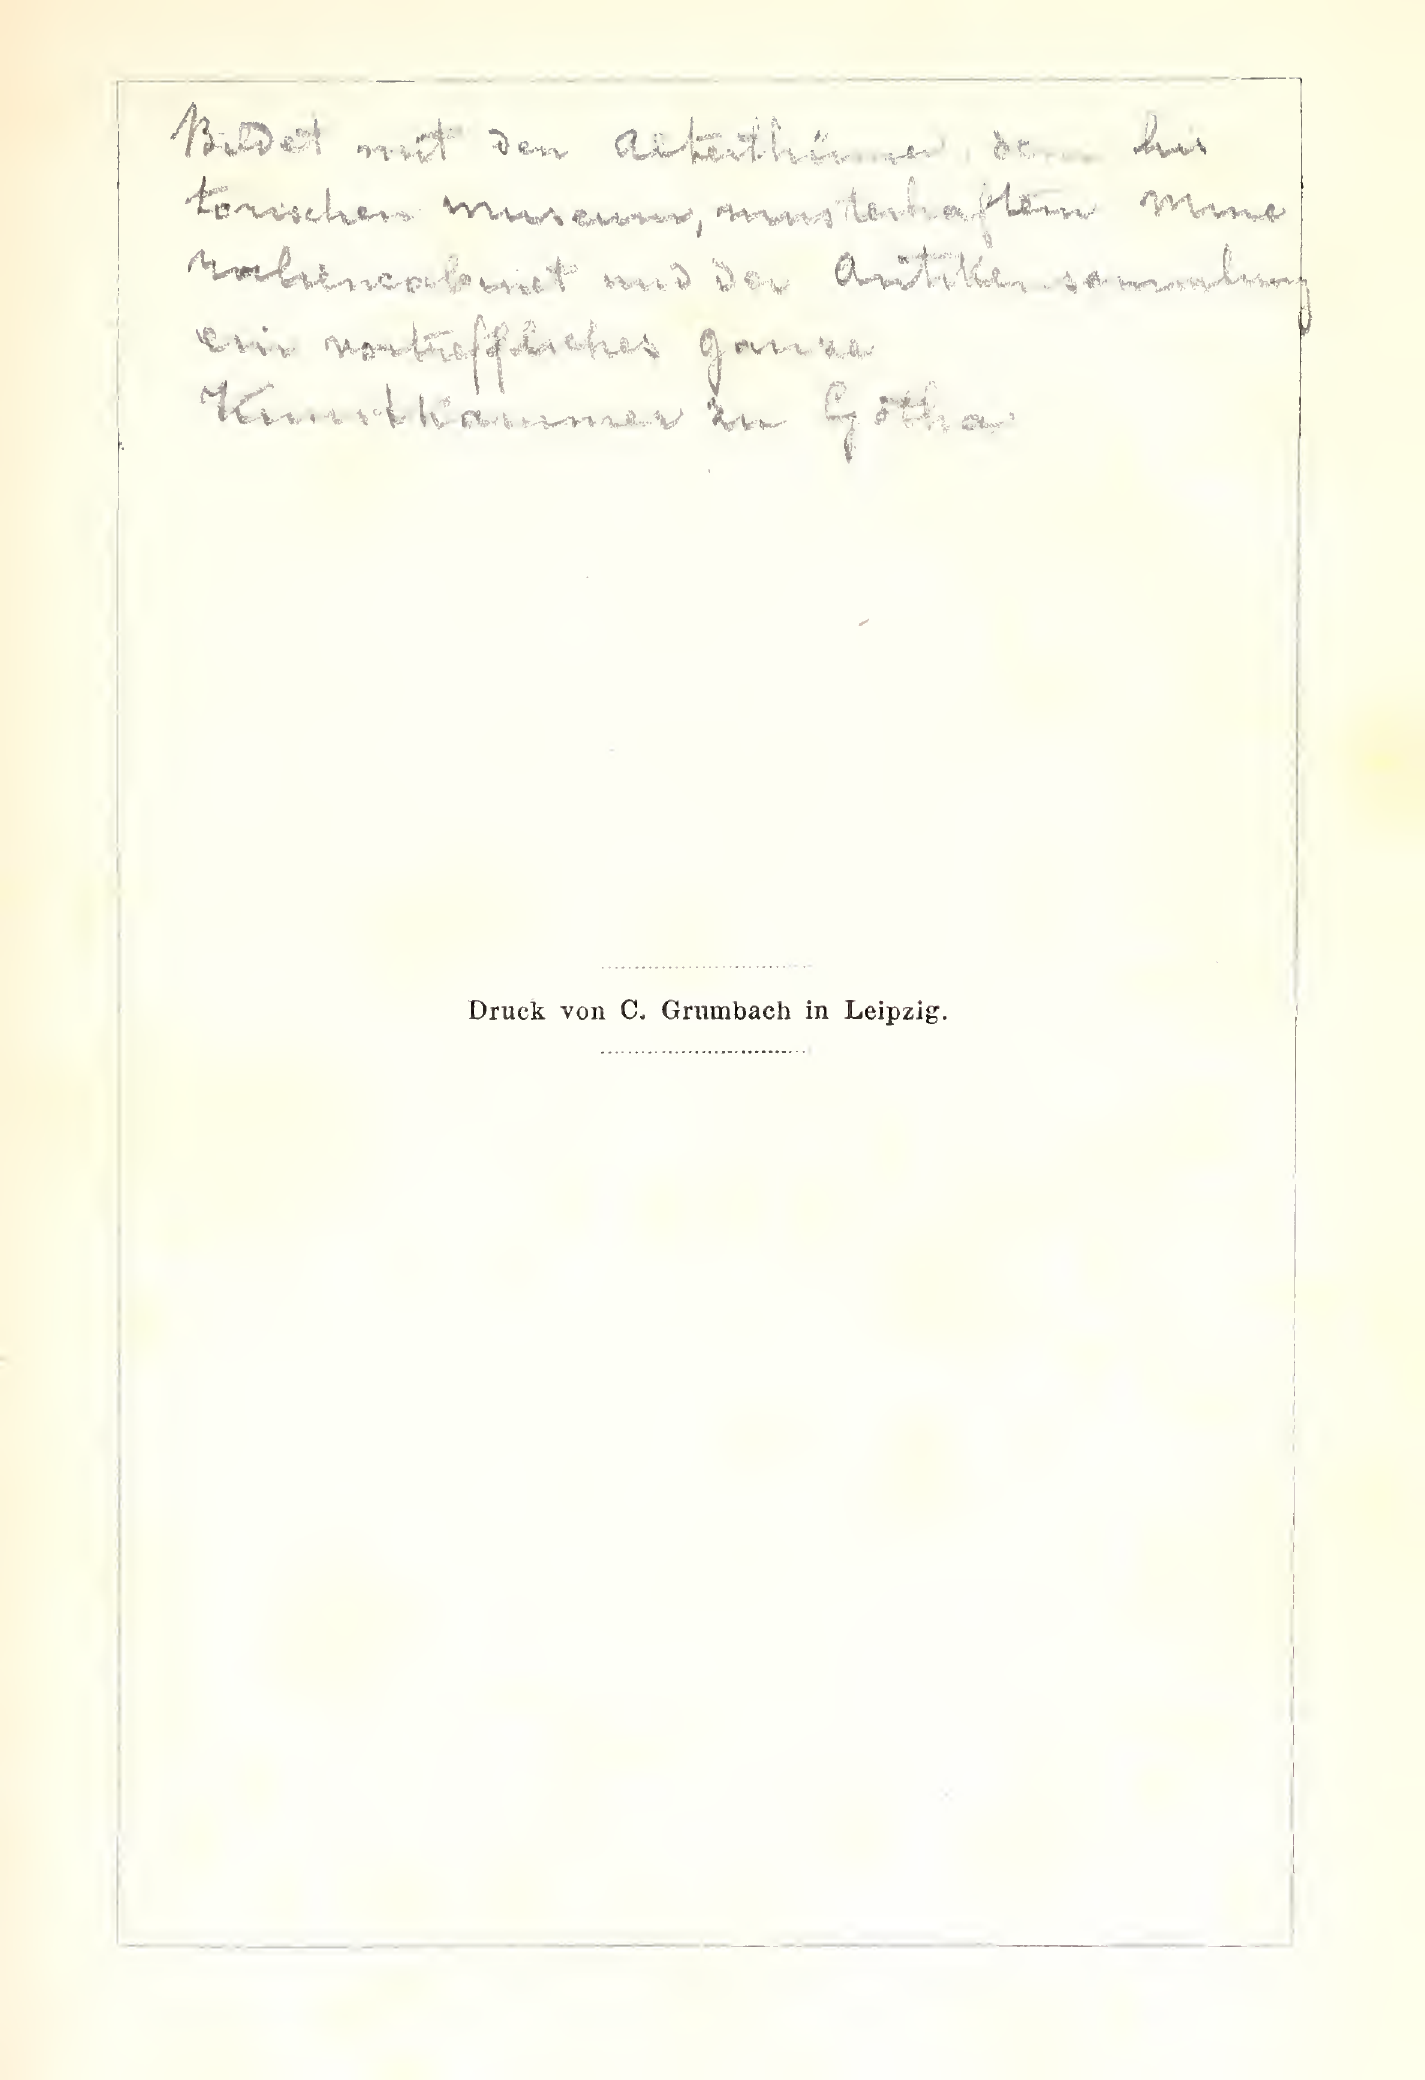 Bildet mit den Alterthümer, dem his
torischen Museum, musterhaftem Mine
raliencabinet und der Antikensammlung
ein vortreffliches ganze
Kunstkammer zu Gotha
Druck von C. Grumbach in Leipzig.